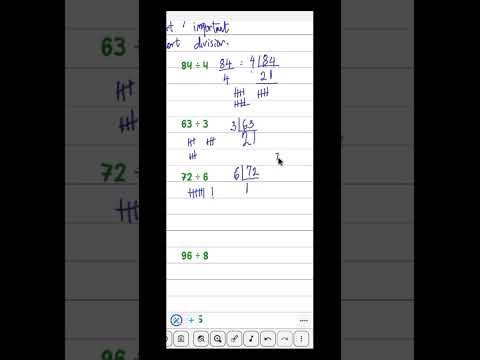 important
short division.
84 ÷ 4 84/4 = 4|84
21
63 ÷ 3 3|63
21
72 ÷ 6 6|72
1
96 ÷ 8
+ 5
63
72 ÷
96 ÷ 8